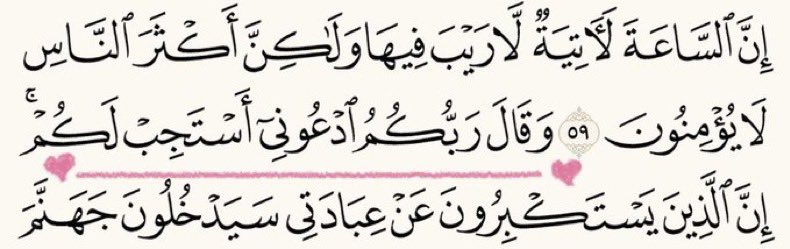 إِنَّ ٱلسَّاعَةَ لَأٓتِيَةٌ لَّا رَيْبَ فِيهَا وَلَٰكِنَّ أَكْثَرَ ٱلنَّاسِ
لَا يُؤْمِنُونَ ٥٩ وَقَالَ رَبُّكُمُ ٱدْعُونِيٓ أَسْتَجِبْ لَكُمْۚ
إِنَّ ٱلَّذِينَ يَسْتَكْبِرُونَ عَنْ عِبَادَتِي سَيَدْخُلُونَ جَهَنَّمَ